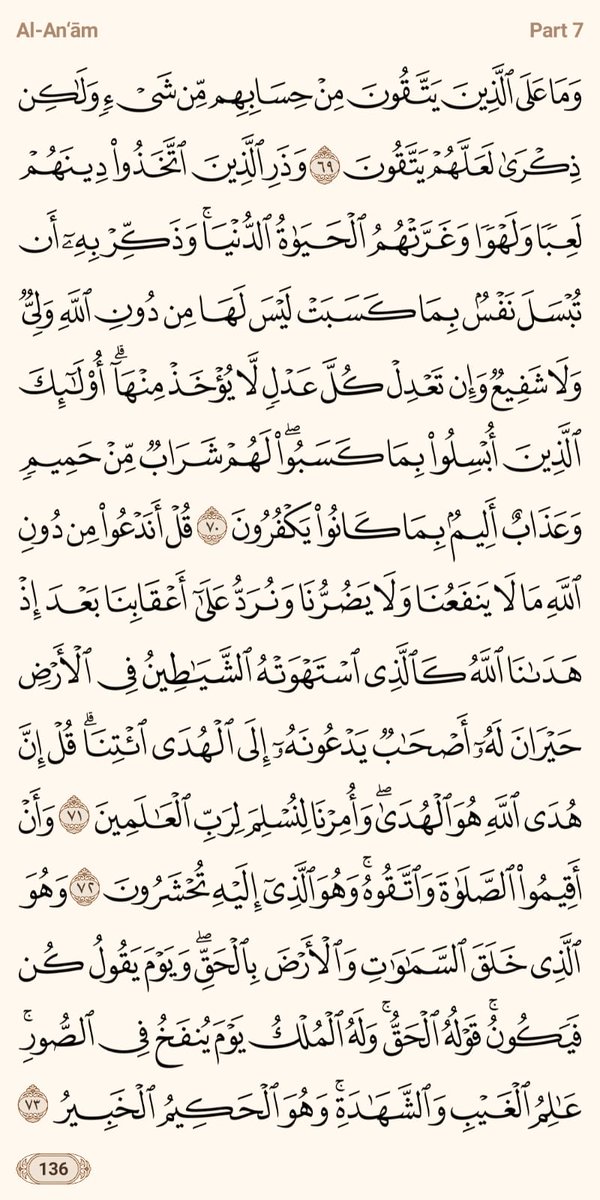 Al-An‘ām Part 7
وَمَا عَلَى ٱلَّذِينَ يَتَّقُونَ مِنْ حِسَابِهِم مِّن شَىْءٍ وَلَـٰكِن
ذِكْرَىٰ لَعَلَّهُمْ يَتَّقُونَ ٦٩ وَذَرِ ٱلَّذِينَ ٱتَّخَذُوا۟ دِينَهُمْ
لَعِبًا وَلَهْوًا وَغَرَّتْهُمُ ٱلْحَيَوٰةُ ٱلدُّنْيَا ۚ وَذَكِّرْ بِهِۦٓ أَن
تُبْسَلَ نَفْسٌۢ بِمَا كَسَبَتْ لَيْسَ لَهَا مِن دُونِ ٱللَّهِ وَلِىٌّ
وَلَا شَفِيعٌ وَإِن تَعْدِلْ كُلَّ عَدْلٍ لَّا يُؤْخَذْ مِنْهَآ ۗ أُو۟لَـٰٓئِكَ
ٱلَّذِينَ أُبْسِلُوا۟ بِمَا كَسَبُوا۟ ۖ لَهُمْ شَرَابٌ مِّنْ حَمِيمٍ
وَعَذَابٌ أَلِيمٌۢ بِمَا كَانُوا۟ يَكْفُرُونَ ٧٠ قُلْ أَنَدْعُوا۟ مِن دُونِ
ٱللَّهِ مَا لَا يَنفَعُنَا وَلَا يَضُرُّنَا وَنُرَدُّ عَلَىٰٓ أَعْقَابِنَا بَعْدَ إِذْ
هَدَىٰنَا ٱللَّهُ كَٱلَّذِى ٱسْتَهْوَتْهُ ٱلشَّيَـٰطِينُ فِى ٱلْأَرْضِ
حَيْرَانَ لَهُۥٓ أَصْحَـٰبٌ يَدْعُونَهُۥٓ إِلَى ٱلْهُدَى ٱئْتِنَا ۗ قُلْ إِنَّ
هُدَى ٱللَّهِ هُوَ ٱلْهُدَىٰ ۖ وَأُمِرْنَا لِنُسْلِمَ لِرَبِّ ٱلْعَـٰلَمِينَ ٧١ وَأَنْ
أَقِيمُوا۟ ٱلصَّلَوٰةَ وَٱتَّقُوهُ ۚ وَهُوَ ٱلَّذِىٓ إِلَيْهِ تُحْشَرُونَ ٧٢ وَهُوَ
ٱلَّذِى خَلَقَ ٱلسَّمَـٰوَٰتِ وَٱلْأَرْضَ بِٱلْحَقِّ ۖ وَيَوْمَ يَقُولُ كُن
فَيَكُونُ ۚ قَوْلُهُ ٱلْحَقُّ ۚ وَلَهُ ٱلْمُلْكُ يَوْمَ يُنفَخُ فِى ٱلصُّورِ ۚ
عَـٰلِمُ ٱلْغَيْبِ وَٱلشَّهَـٰدَةِ ۚ وَهُوَ ٱلْحَكِيمُ ٱلْخَبِيرُ ٧٣
136